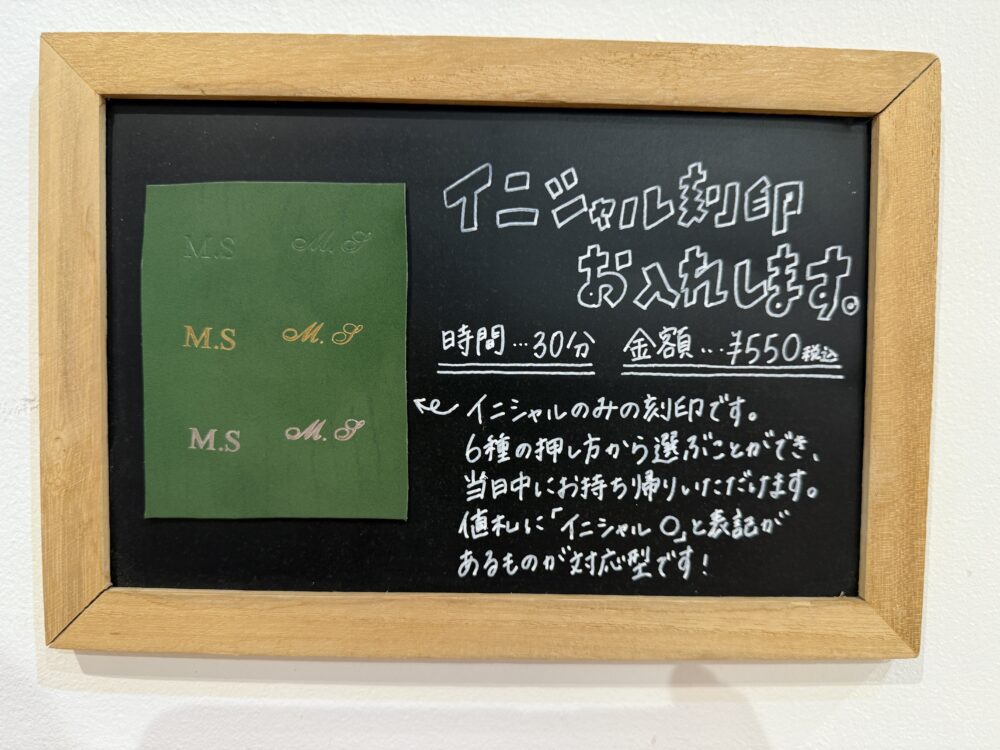 M.S M.S
M.S M.S
M.S M.S
イニシャル刻印
お入れします。
時間…30分 金額…¥550税込
イニシャルのみの刻印です。
6種の押し方から選ぶことができ、
当日中にお持ち帰りいただけます。
値札に「イニシャル○」と表記が
あるものが対応型です!